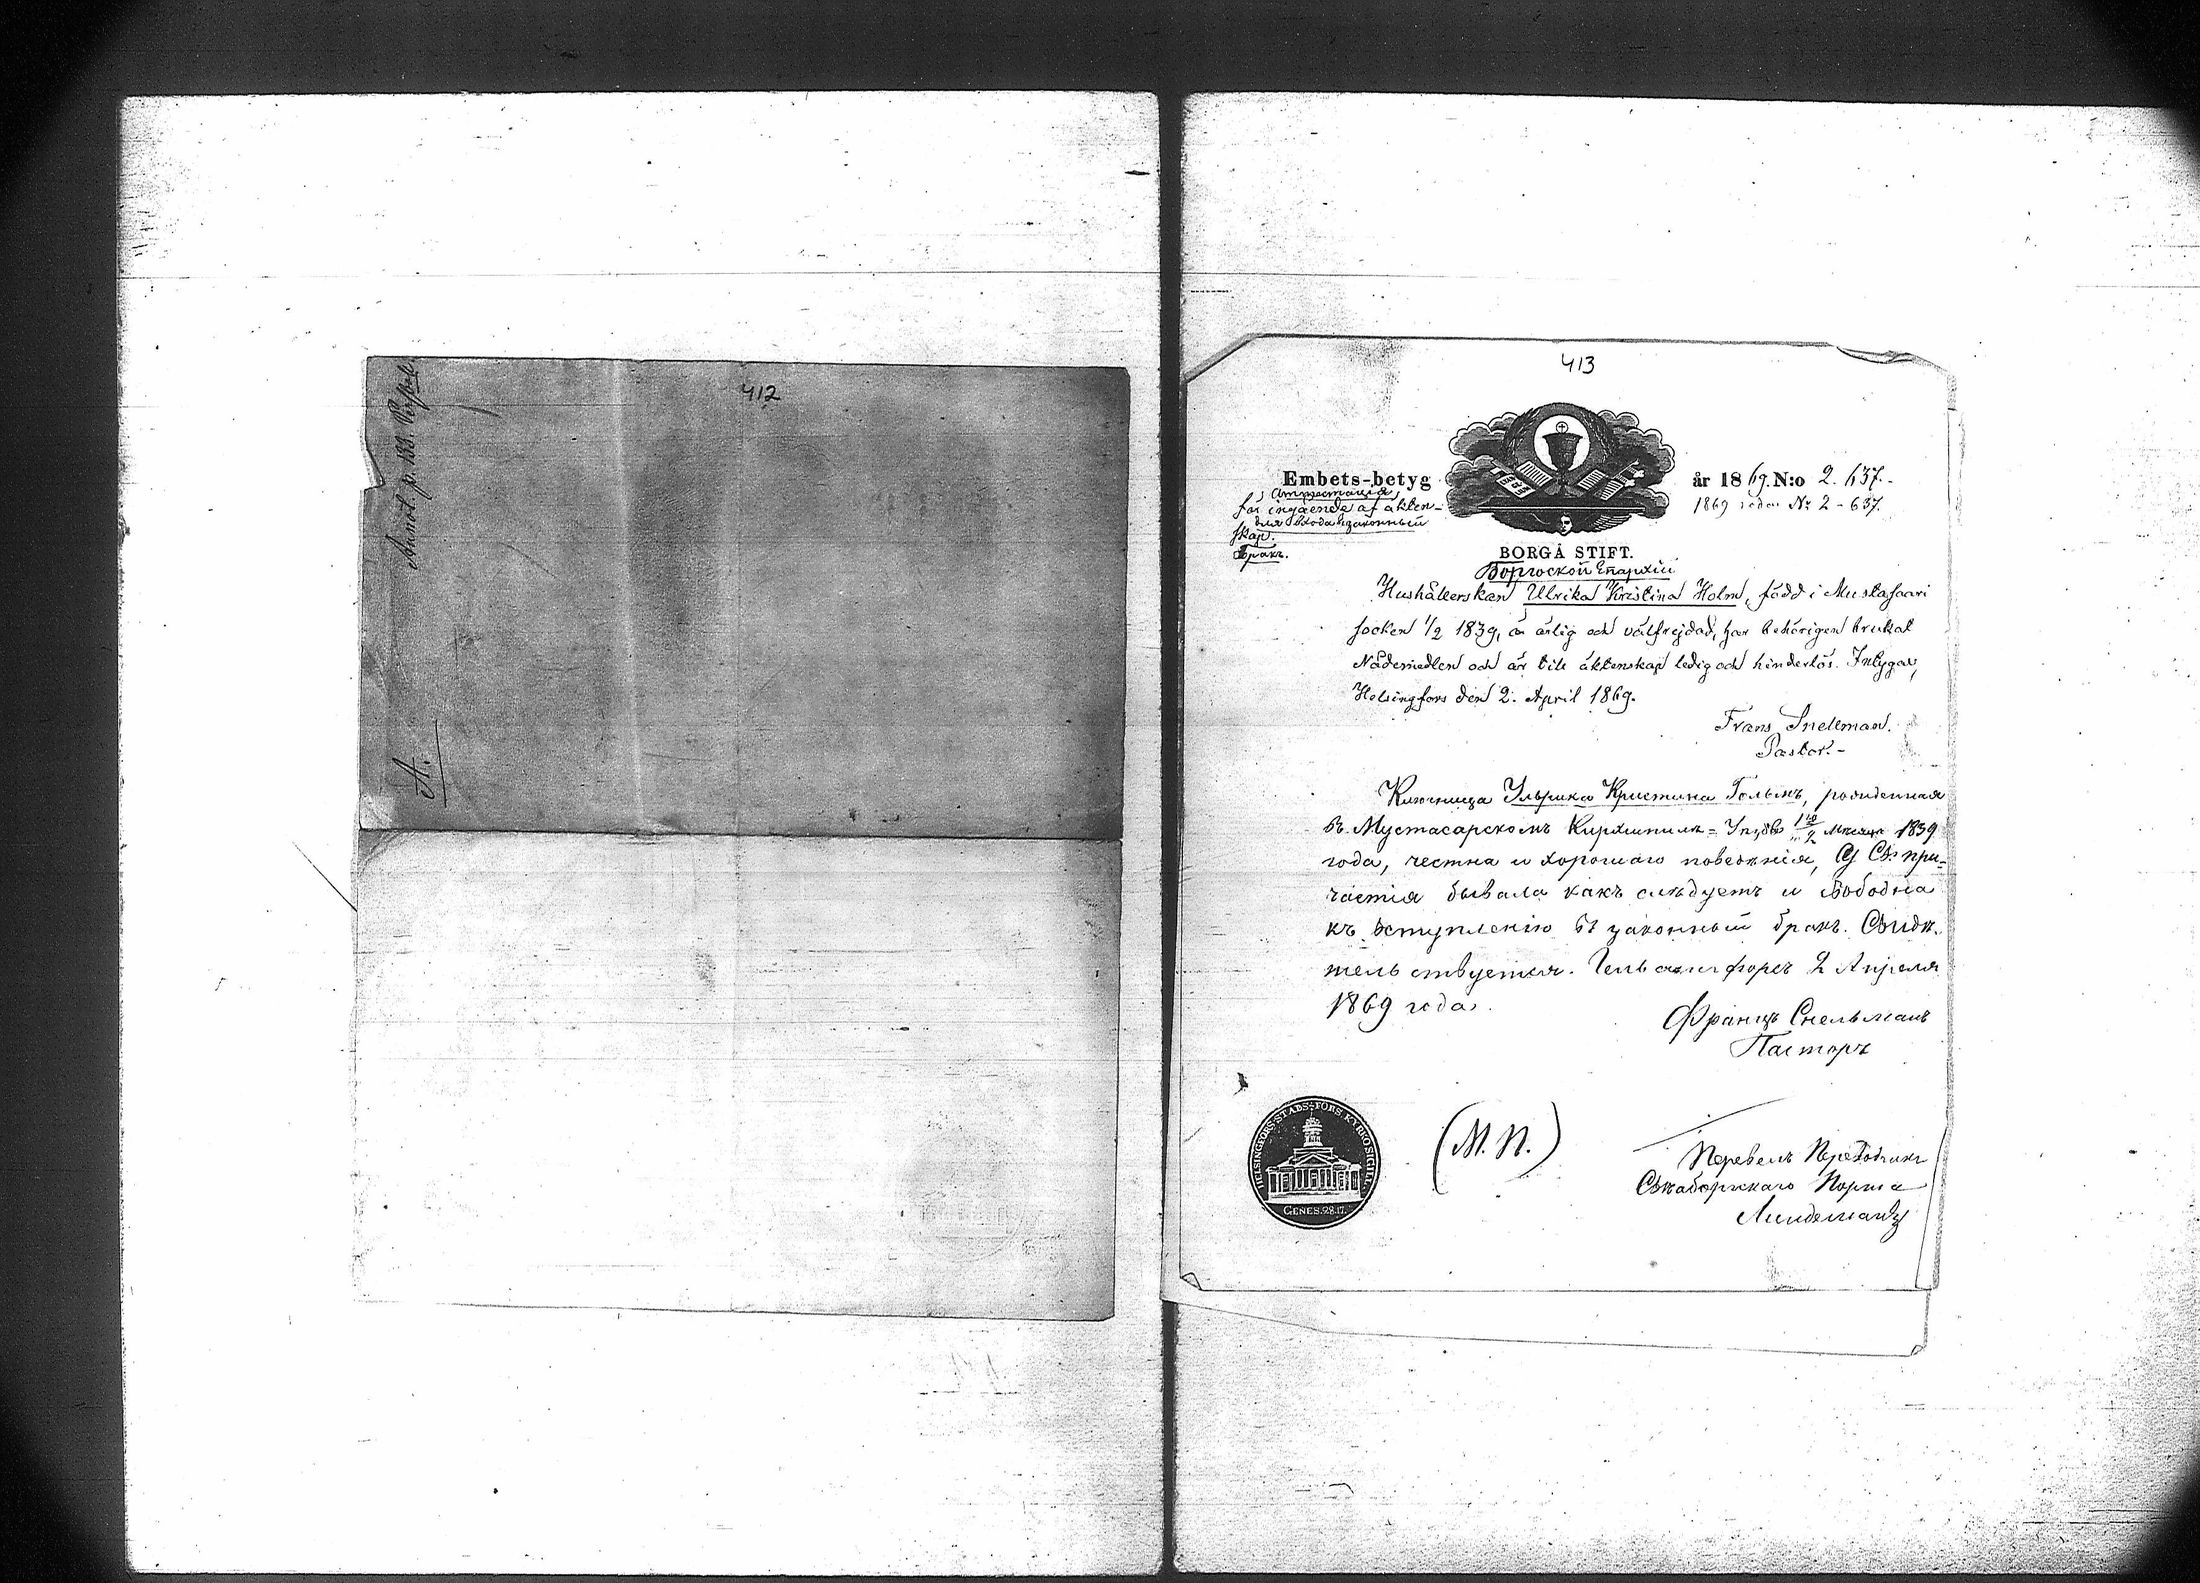 412
Annot. p. 139.
A.
413
Embets-betyg år 1869. N:o 2. 637.
Аттестація,
för ingående af äkten-
1869 года № 2 - 637.
для входа въ законный
skap.
бракъ.
BORGÅ STIFT.
Боргоской Епархіи
Hushållerskan Ulrika Kristina Holm, född i Mustasaari
socken 1/2 1839, är ärlig och välfrejdad, har behörigen brukat
Nådemedlen och är till äktenskap ledig och hinderlös. Intygar,
Helsingfors den 2. April 1869.
Frans Snellman.
Pastor.-
Ключница Ульрика Кристина Гольмъ, рожденная
въ Мустасарскомъ Кирхшпилѣ 1839
года, честна и хорошаго поведенія, Св. при-
частія бывала какъ слѣдуетъ и свободна
къ вступленію въ законный бракъ. Свидѣ-
тельствуется. Гельсингфорсъ 2 Апрѣля
1869 года.
Францъ Снельманъ
Пасторъ
(М. П.)
HELSINGFORS STADS-FÖRS. KYRKO SIGILL.
GENES. 28.17.
Перевелъ Переводчикъ
Свеаборгскаго Порта
Линдеманъ